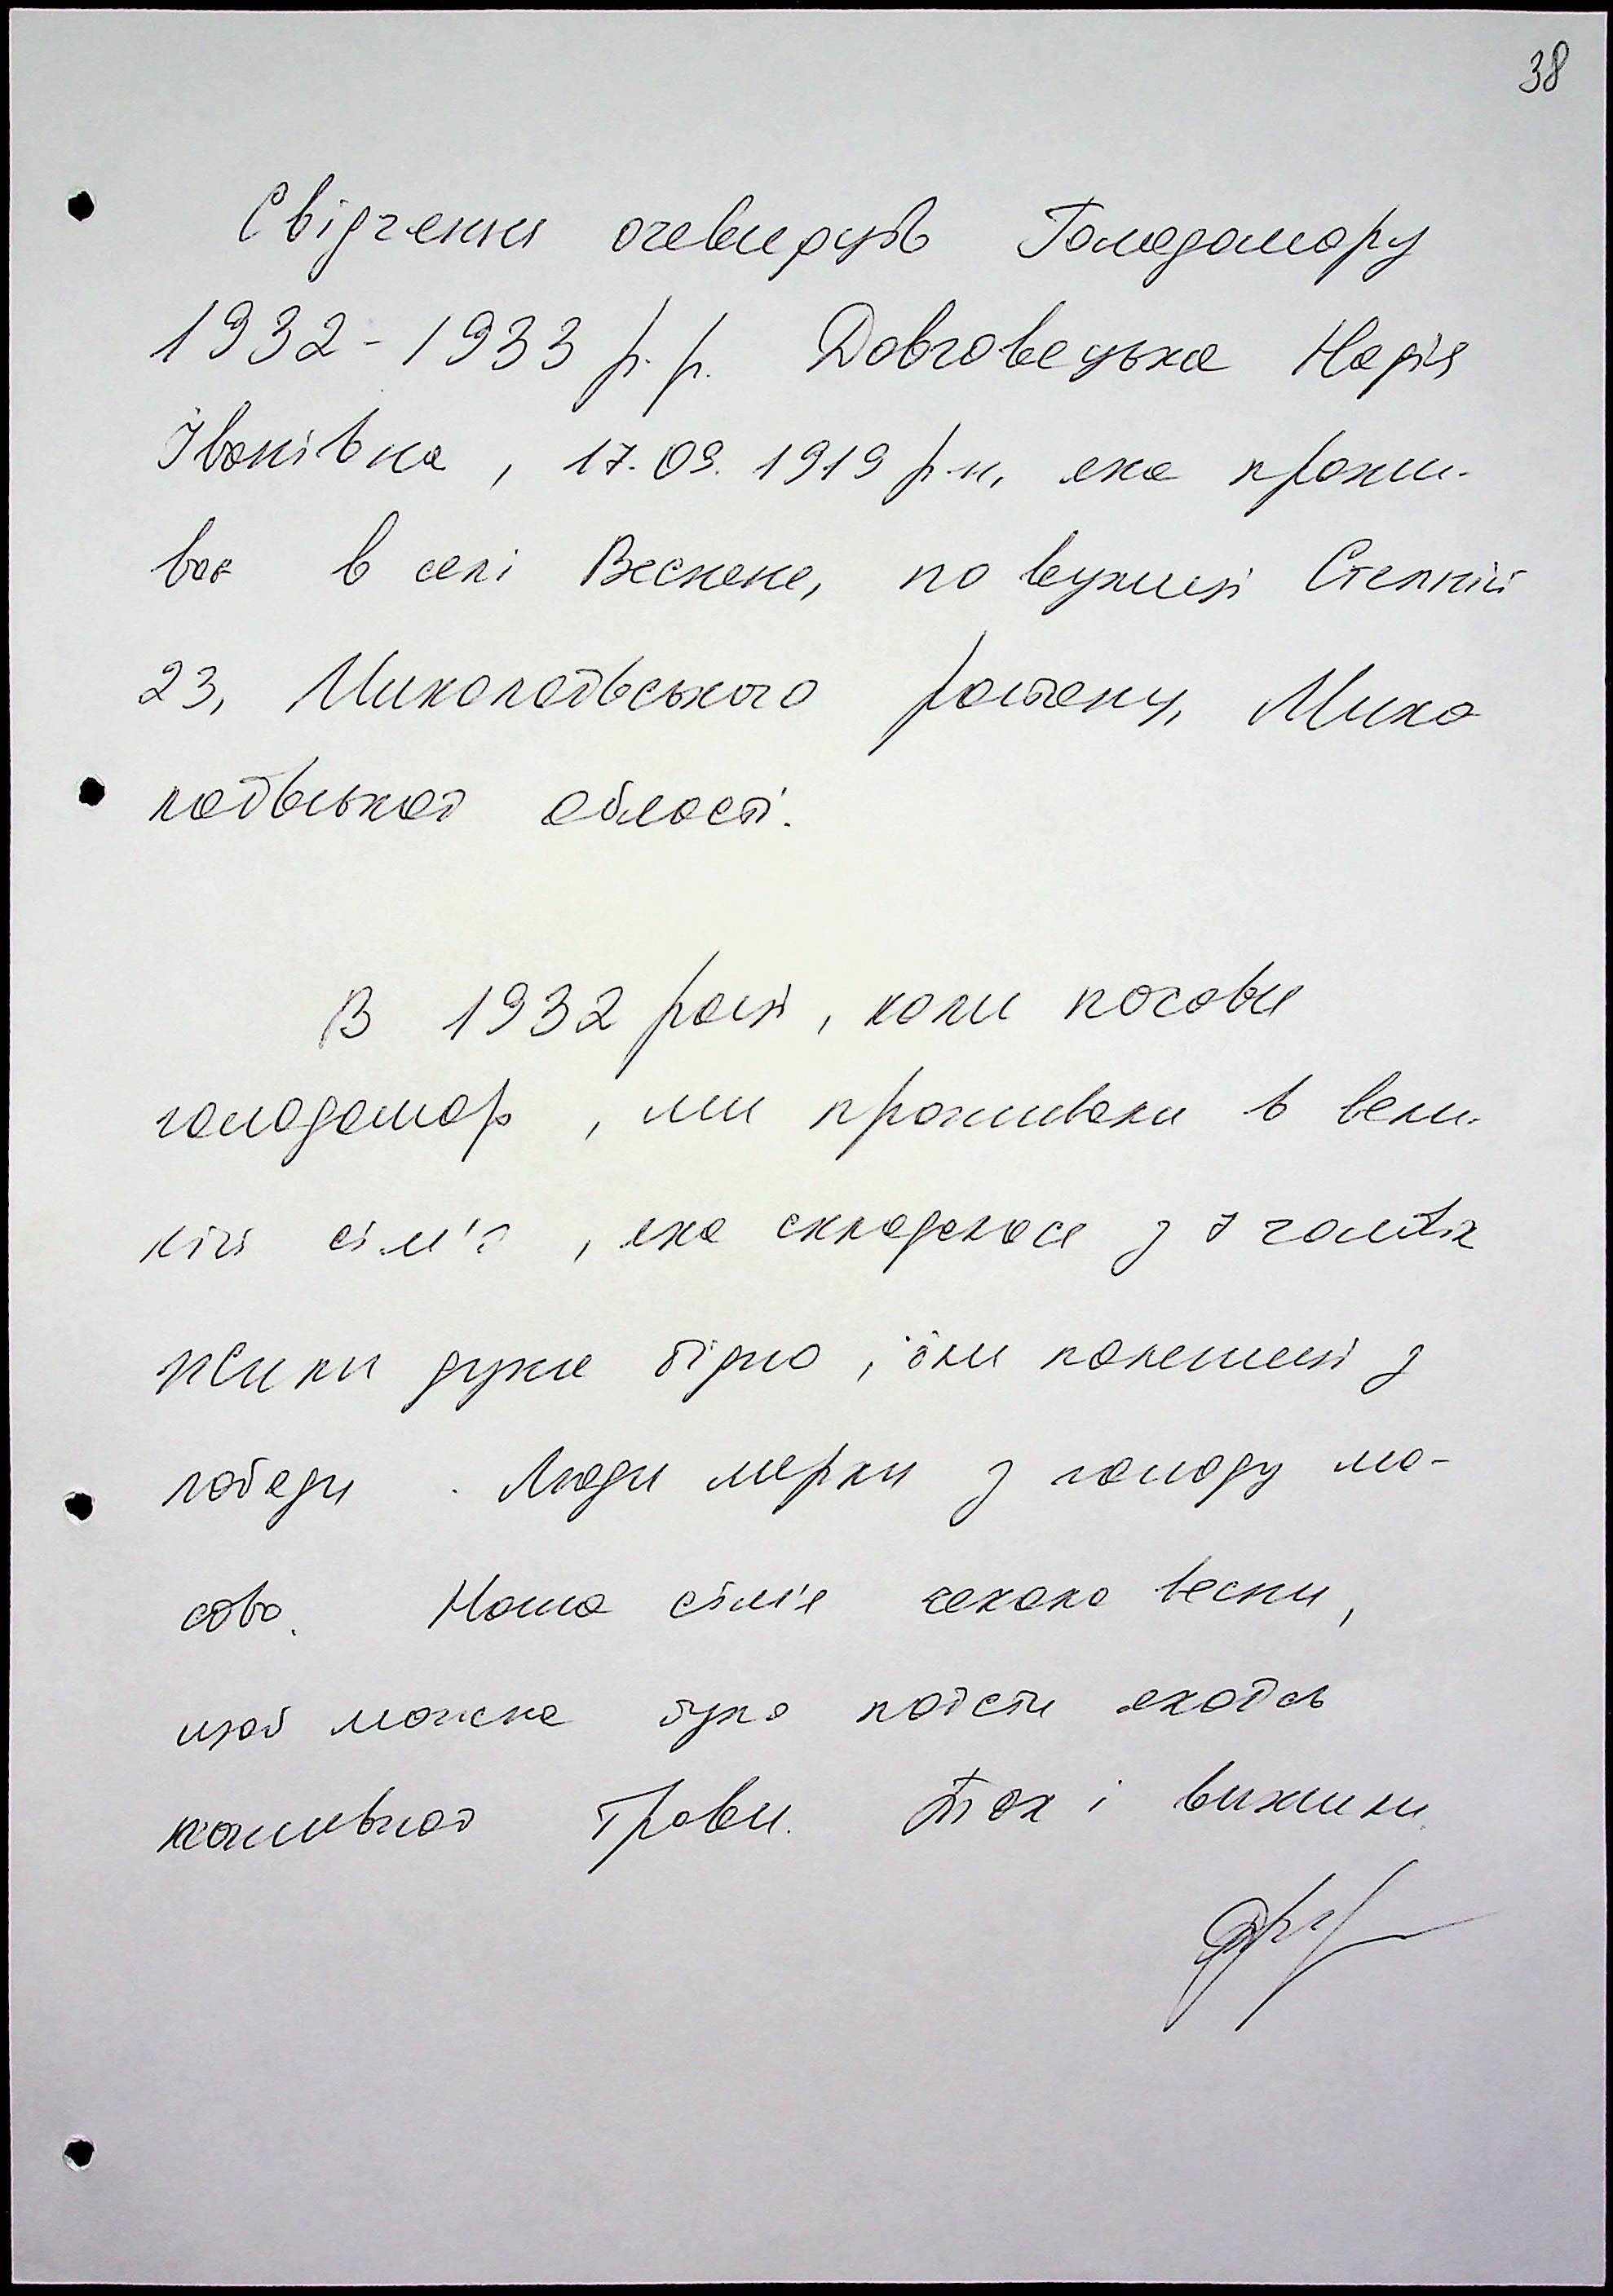 38
Свідчення очевидців Голодомору
1932-1933 р.р. Довговецька Надія
Іванівна, 17.09.1919 р.н, яка прожи-
ває в селі Весняне, по вулиці Степній
23, Миколаївського району, Мико
лаївської області.
В 1932 році, коли почався
голодомор, ми проживали в вели-
кій сім'ї, яка складалася з чоловік
жили дуже бідно, їли паляниці з
лободи. Люди мерли з голоду ма-
сово. Наша сім'я чекала весни,
щоб можна було поїсти якоїсь
їстівної трави. Так і вижили.